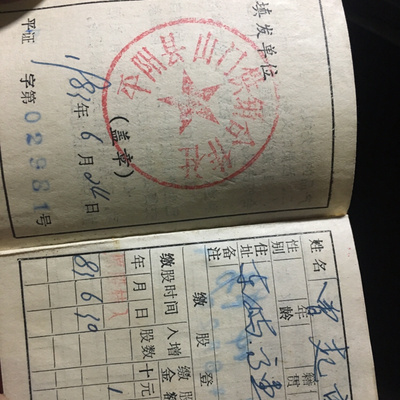 填发单位
平阳县山门供销合作社
(盖章)
1983年6月24日
平证字第02981号
姓名
性别 年龄 籍贯
住址
备注
缴股登
缴股时间 入增 缴股金额
年月日 股数 十元
83 6 20